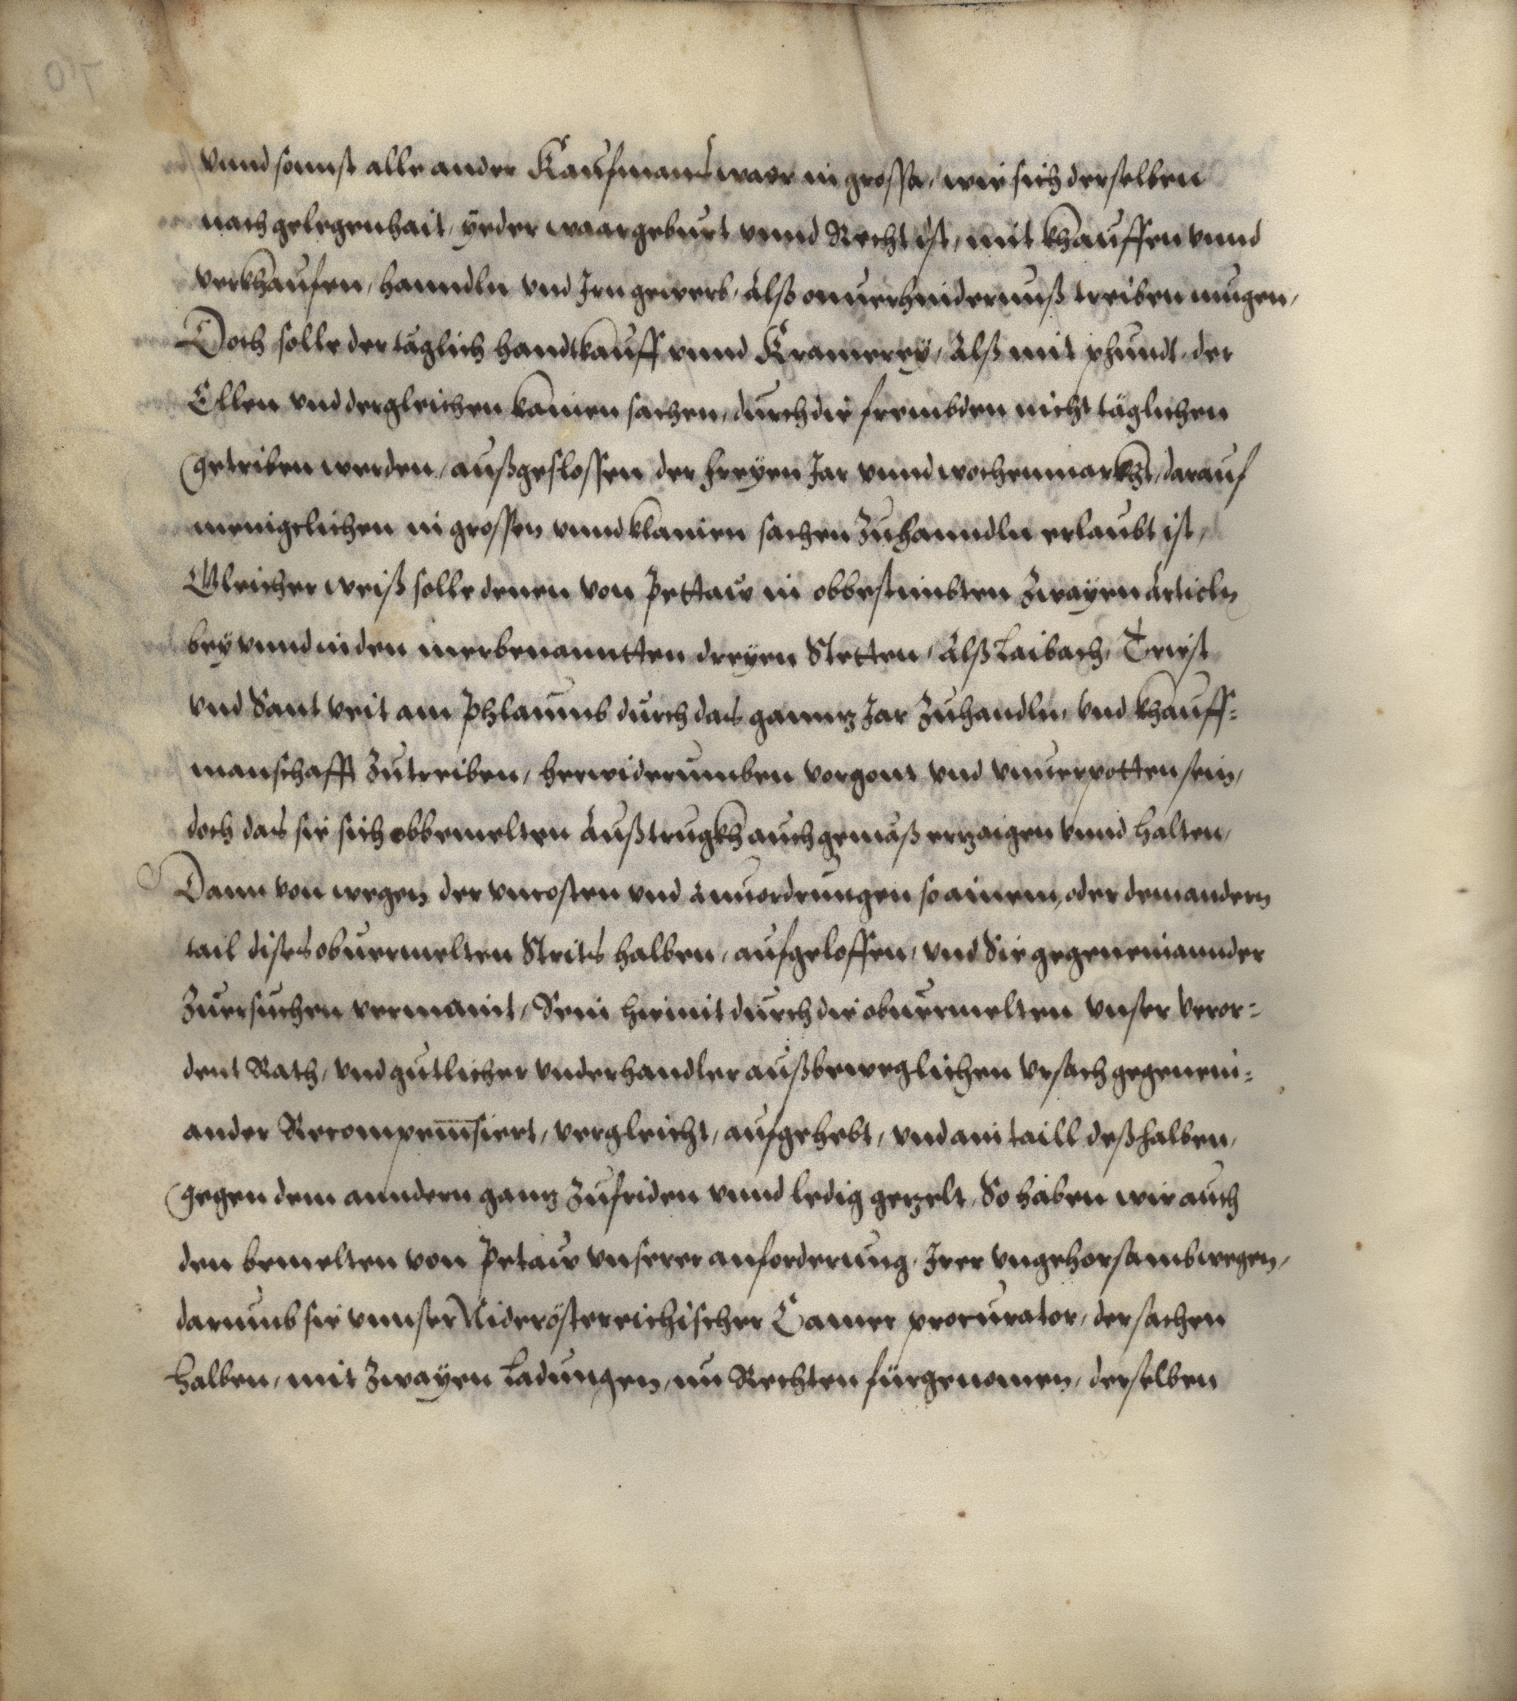 vnnd sonnst alle ander Kaufmans waar in grosse, wie sich derselben
nach gelegenhait, yeder waar geburt vnnd Recht ist, mit khauffen vnnd
verkhaufen, hanndln vnd Irn gewerb, Alß onuerhindernuß treiben mugen,
Doch solle der täglich handtkauff vnnd Kramerey, Alß mit phundt, der
Ellen vnd dergleichen klainen sachen, durch die frembden nicht täglichen
getriben werden, außgeslossen der freyen Jar vnnd wochenmarkht, darauf
menigclichen in grossen vnnd klainen sachen Zuhanndln erlaubt ist,
Gleicher weiß solle denen von Pettaw in obbestimbten Zwayen Articln
bey vnnd in den merbenanntten dreyen Stetten, Alß Laibach, Triest
vnd Sant Veit am Phlaumb durch das ganntz Jar Zuhandln, vnd khauff-
manschafft Zutreiben, herwiderumben vergont vnd vnuerpotten sein,
doch das sie sich obbemelten Außtrugkh auch gemäß ertzaigen vnnd halten,
Dann von wegen der vncosten vnd Anuordrungen so ainem, oder dem andern
tail dises obuermelten Strits halben, aufgeloffen, vnd Sie gegeneinannder
Zuersuchen vermaint, Sein hiemit durch die obuermelten vnser veror-
dent Rath, vnd gutlicher vnderhandler auß beweglichen vrsach gegenein-
ander Recompensiert, vergleicht, aufgehebt, vnd ain taill deßhalben,
gegen dem anndern gantz Zufriden vnnd ledig getzelt, So haben wir auch
den bemelten von Petaw vnserer anforderung, Irer vngehorsamb wegen,
darumb sie vnnser Niderösterreichischer Camer procurator, der sachen
halben, mit Zwayen Ladungen, im Rechten fürgenomen, derselben